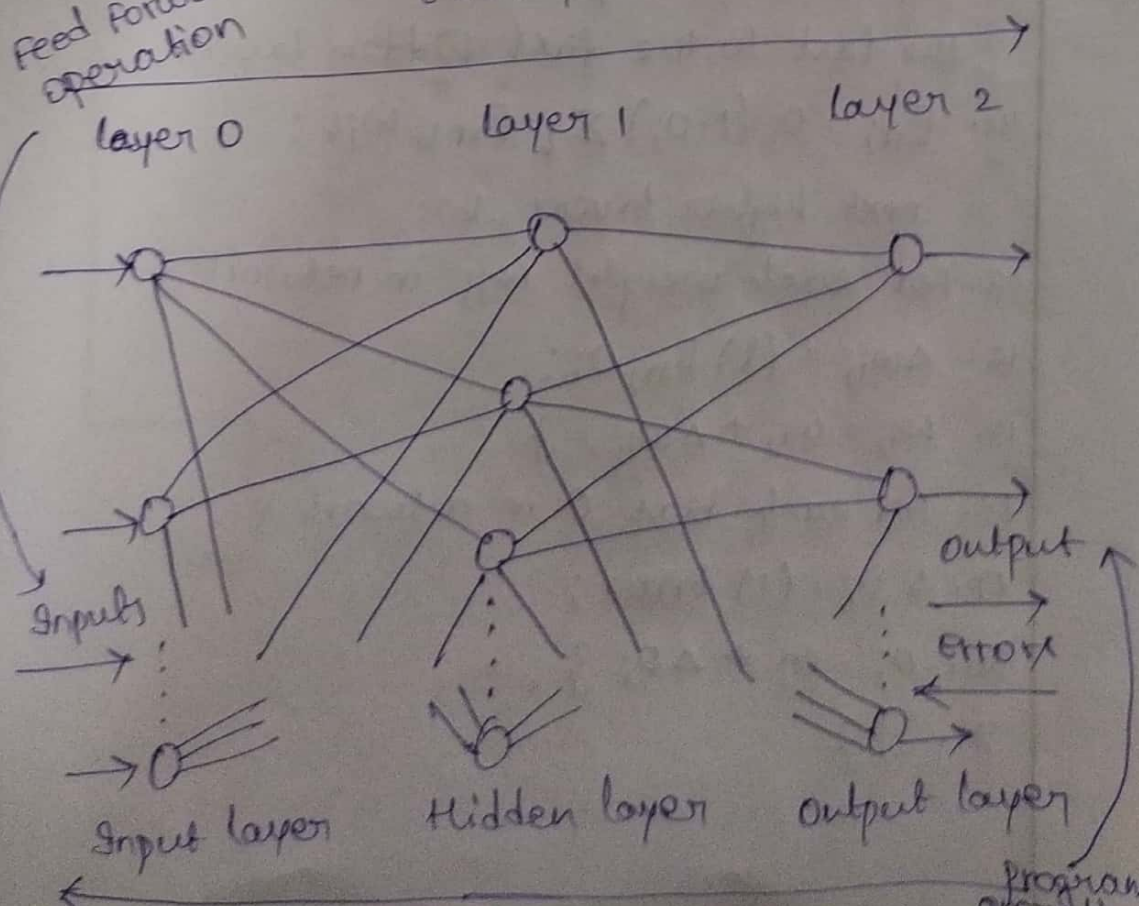 Feed
operation
layer 0
layer 1
layer 2
Inputs
Output
Error
Input layer
Hidden layer
Output layer